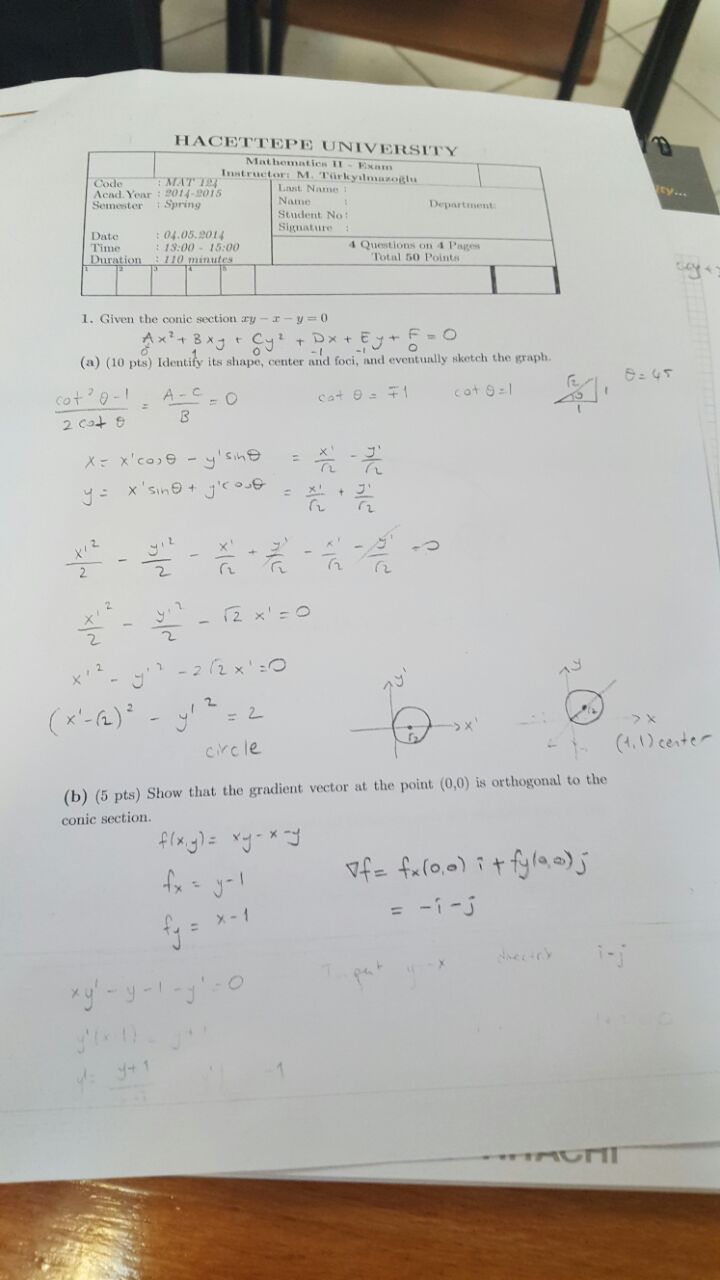 HACETTEPE UNIVERSITY
Mathematics II - Exam
Instructor: M. Türkyılmazoğlu
Code : MAT 124
Acad. Year : 2014-2015
Semester : Spring
Date : 04.05.2014
Time : 13:00 - 15:00
Duration : 110 minutes
Last Name :
Name : Department:
Student No :
Signature :
4 Questions on 4 Pages
Total 50 Points
1 2 3 4 5
1. Given the conic section xy − x − y = 0
Ax² + Bxy + Cy² + Dx + Ey + F = 0
0 1 0 -1 -1 0
(a) (10 pts) Identify its shape, center and foci, and eventually sketch the graph.
(cot²θ-1)/(2 cot θ) = (A-C)/B = 0 cot θ = ∓1 cot θ = 1 √2 1 1 θ = 45
x = x'cosθ - y'sinθ = x'/√2 - y'/√2
y = x'sinθ + y'cosθ = x'/√2 + y'/√2
x'²/2 - y'²/2 - x'/√2 + y'/√2 - x'/√2 - y'/√2 = 0
x'²/2 - y'²/2 - √2 x' = 0
x'² - y'² - 2√2 x' = 0
(x'-√2)² - y'² = 2
circle
y' x' √2
y x √2
(1,1) center
(b) (5 pts) Show that the gradient vector at the point (0,0) is orthogonal to the
conic section.
f(x,y) = xy-x-y
fx = y-1
fy = x-1
∇f = fx(0,0) i + fy(0,0) j
= -i-j
xy' - y - 1 - y' = 0
i-j
y' = y+1
-1
HITACHI